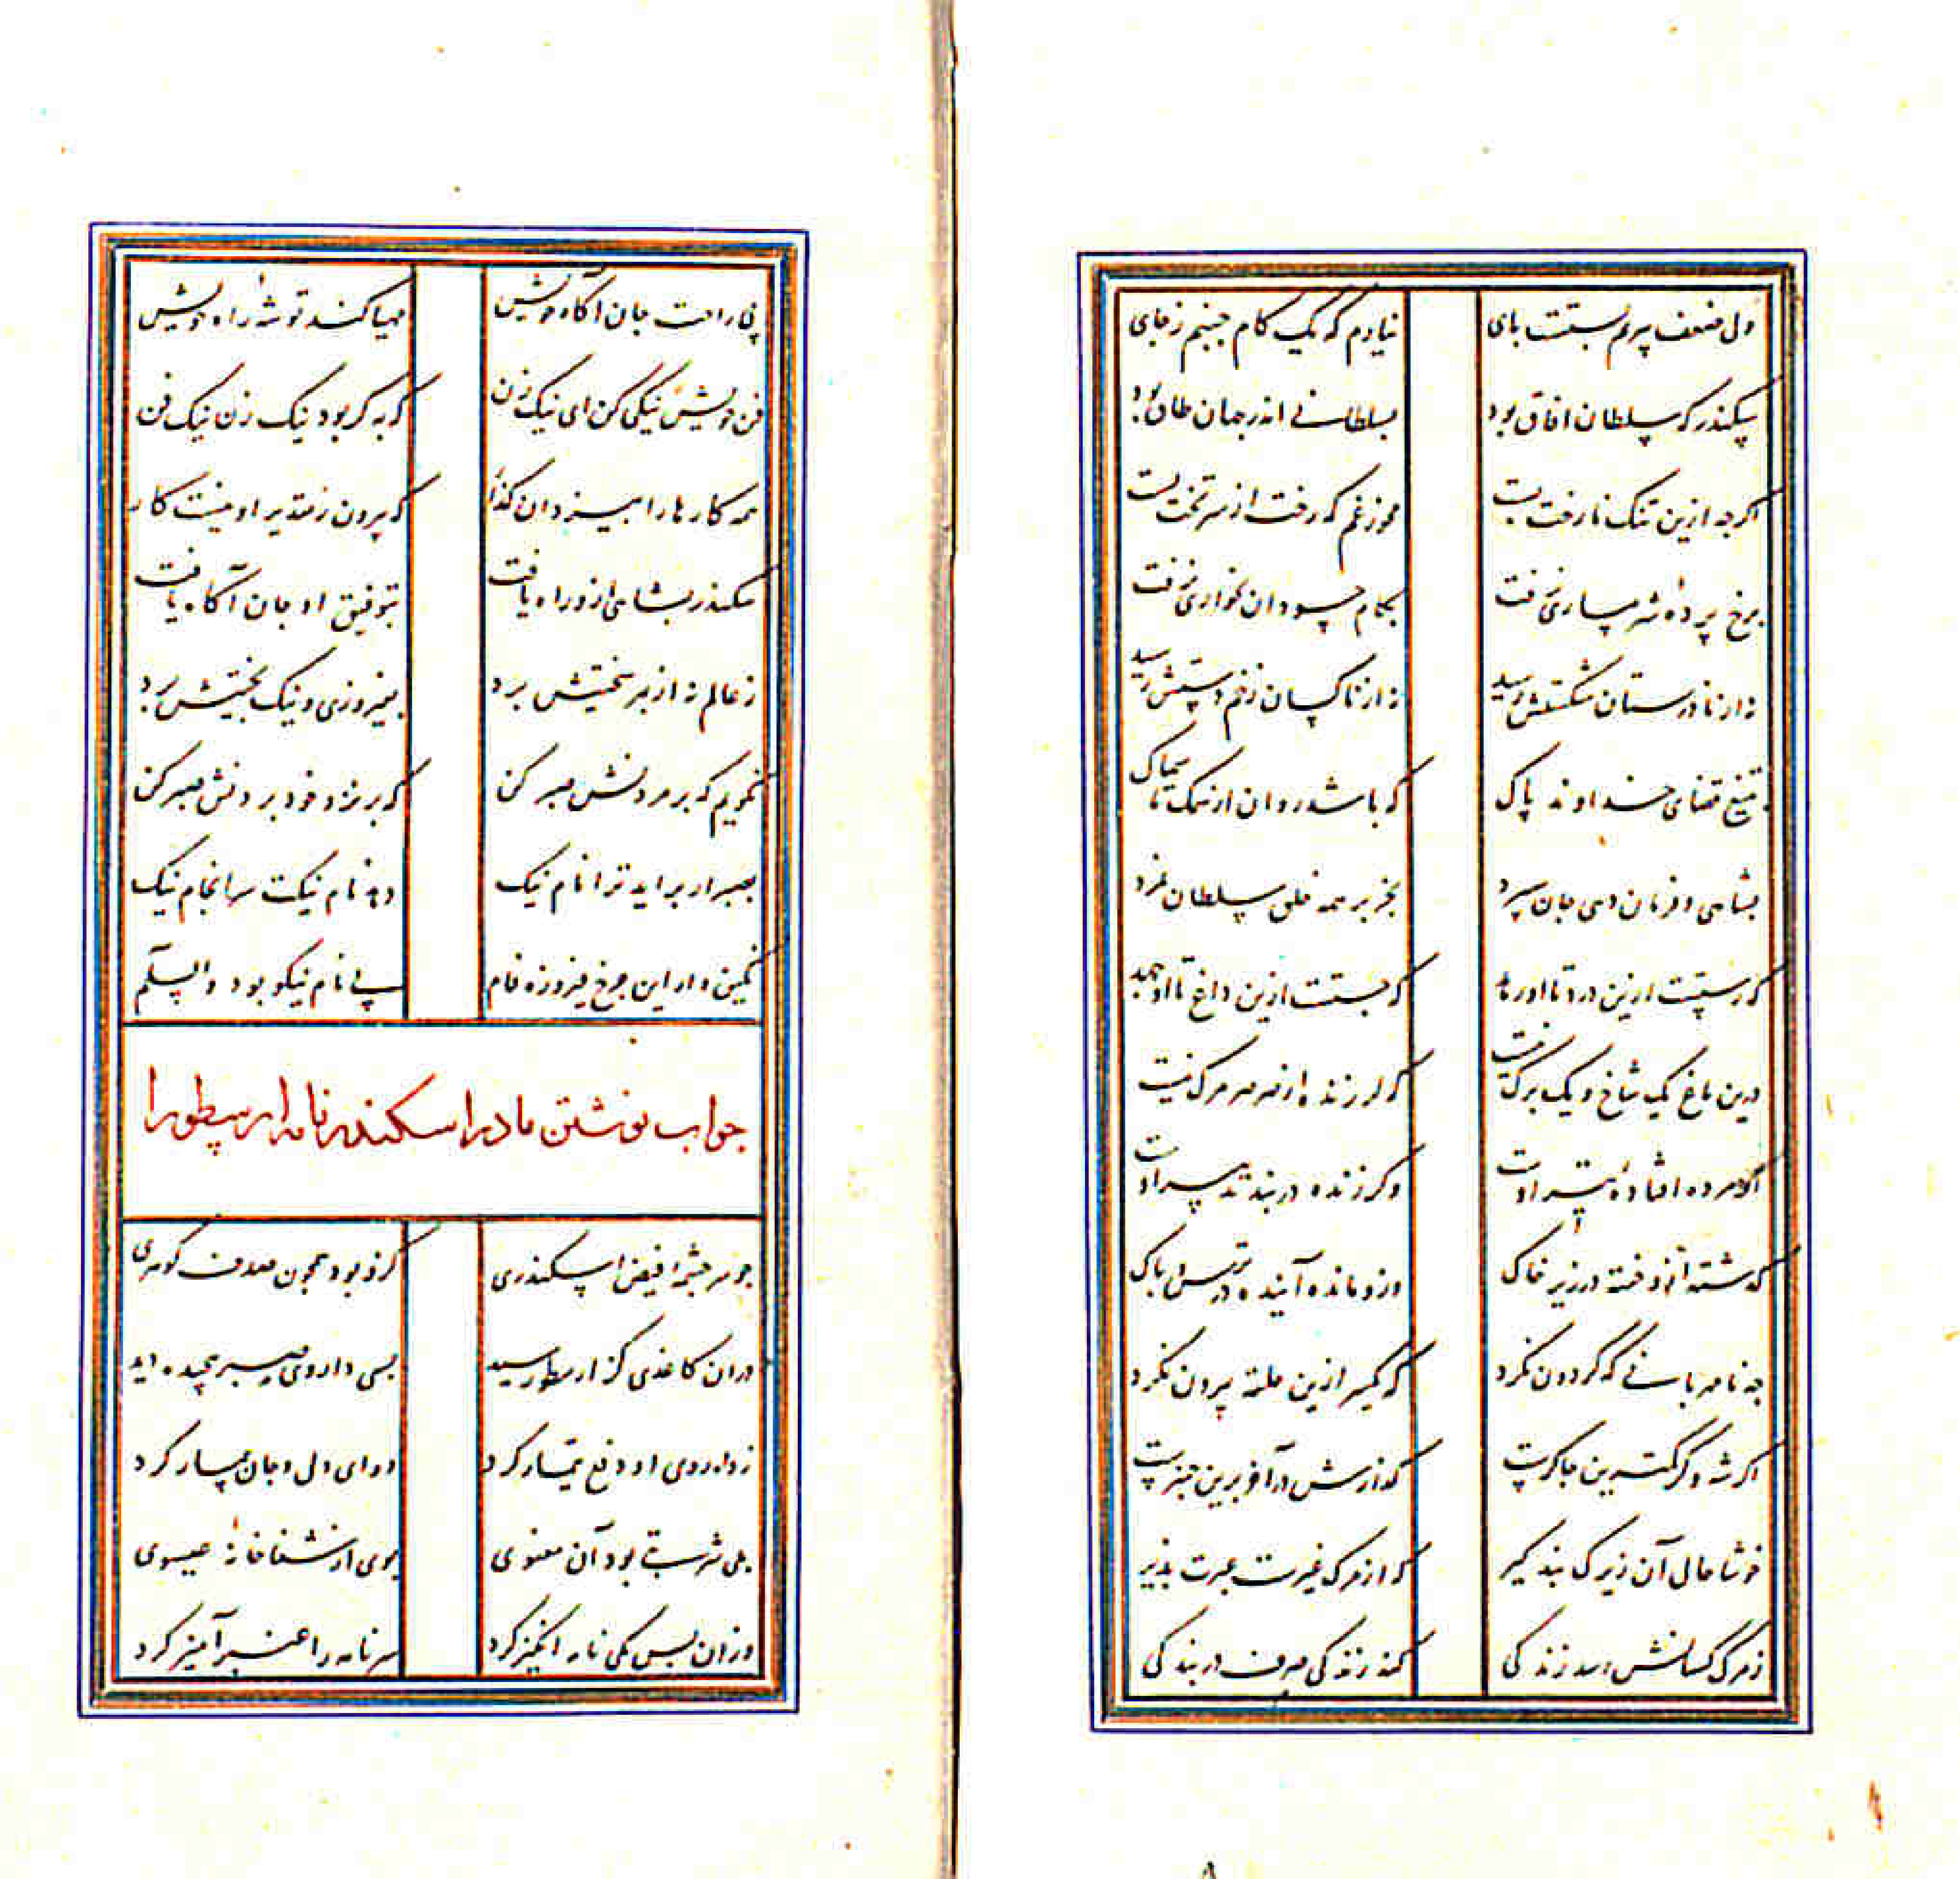 ولی ضعف پیریم بسست پای نیارم که یک کام جنبم زجای
سکندر که سلطان افاق بود بسلطانے اندر جهان طاق بود
اکرچه ازین تنک نا رخت بست مخور غم که رخت از سر تخت بست
برخ پرده شرمساری نرفت بکام حسودان بخواری نرفت
نه از نادرستان شکستش رسید نه از ناکسان زخم دستش رسید
بتیغ قضای خداوند پاک که باشد روان از سمک تا سماک
بشاهی و فرمان دهی جان سپرد بخز بر همه خلق سلطان نمرد
که رستست ازین درد تا او رهد که جستست ازین داغ تا او جهد
درین باغ یک شاخ و یک برک نیست که لرزنده از صرصر مرک نیست
اکر مرده افتاده تیر اوست وکر زنده در بند تدبیر اوست
کذشته ازو خفته در زیر خاک وزو مانده آینده در ترس و باک
چه نامهربانے که کردون نکرد که کس را ازین حلقه بیرون نکرد
اکر شه وکر کمترین چاکرست کذارش در آخر برین چنبرست
خوشا حالی آن زیرک پند کیر که از مرک غیرست عبرت پذیر
ز مرک کسانش رسد زندکی کند زندکی صرف در بندکی
پی راحت جان آکاه خویش مهیا کند توشه راه خویش
فن خویش نیکی کن ای نیک زن که به کر بود نیک زن نیک فن
همه کارها را بیزدان کذار که بیرون ز تقدیر او نیست کار
سکندر بشاهی ازو راه یافت بتوفیق او جان آکاه یافت
ز عالم نه از بهر سختیش برد بفیروزی و نیک بختیش برد
نکویم که بر مردنش صبر کن که بر نزد خود بردنش صبر کن
بصبر ار براید ترا نام نیک دهد نام نیکت سرانجام نیک
نکین وار این چرخ فیروزه فام پی نام نیکو بود والسلام
جواب نوشتن مادر اسکندر نامه ارسطو را
چو سرچشمه فیض اسکندری کزو بود همچون صدف کوهری
دران کاغذی کز ارسطو رسید بسی داروی صبر پیچیده دید
ز داروی او دفع تیمار کرد دوای دل و جان بیمار کرد
بلی شربتی بود آن معنوی بوی از شفاخانه عیسوی
وزان پس یکی نامه انکیز کرد سر نامه را عنبر آمیز کرد